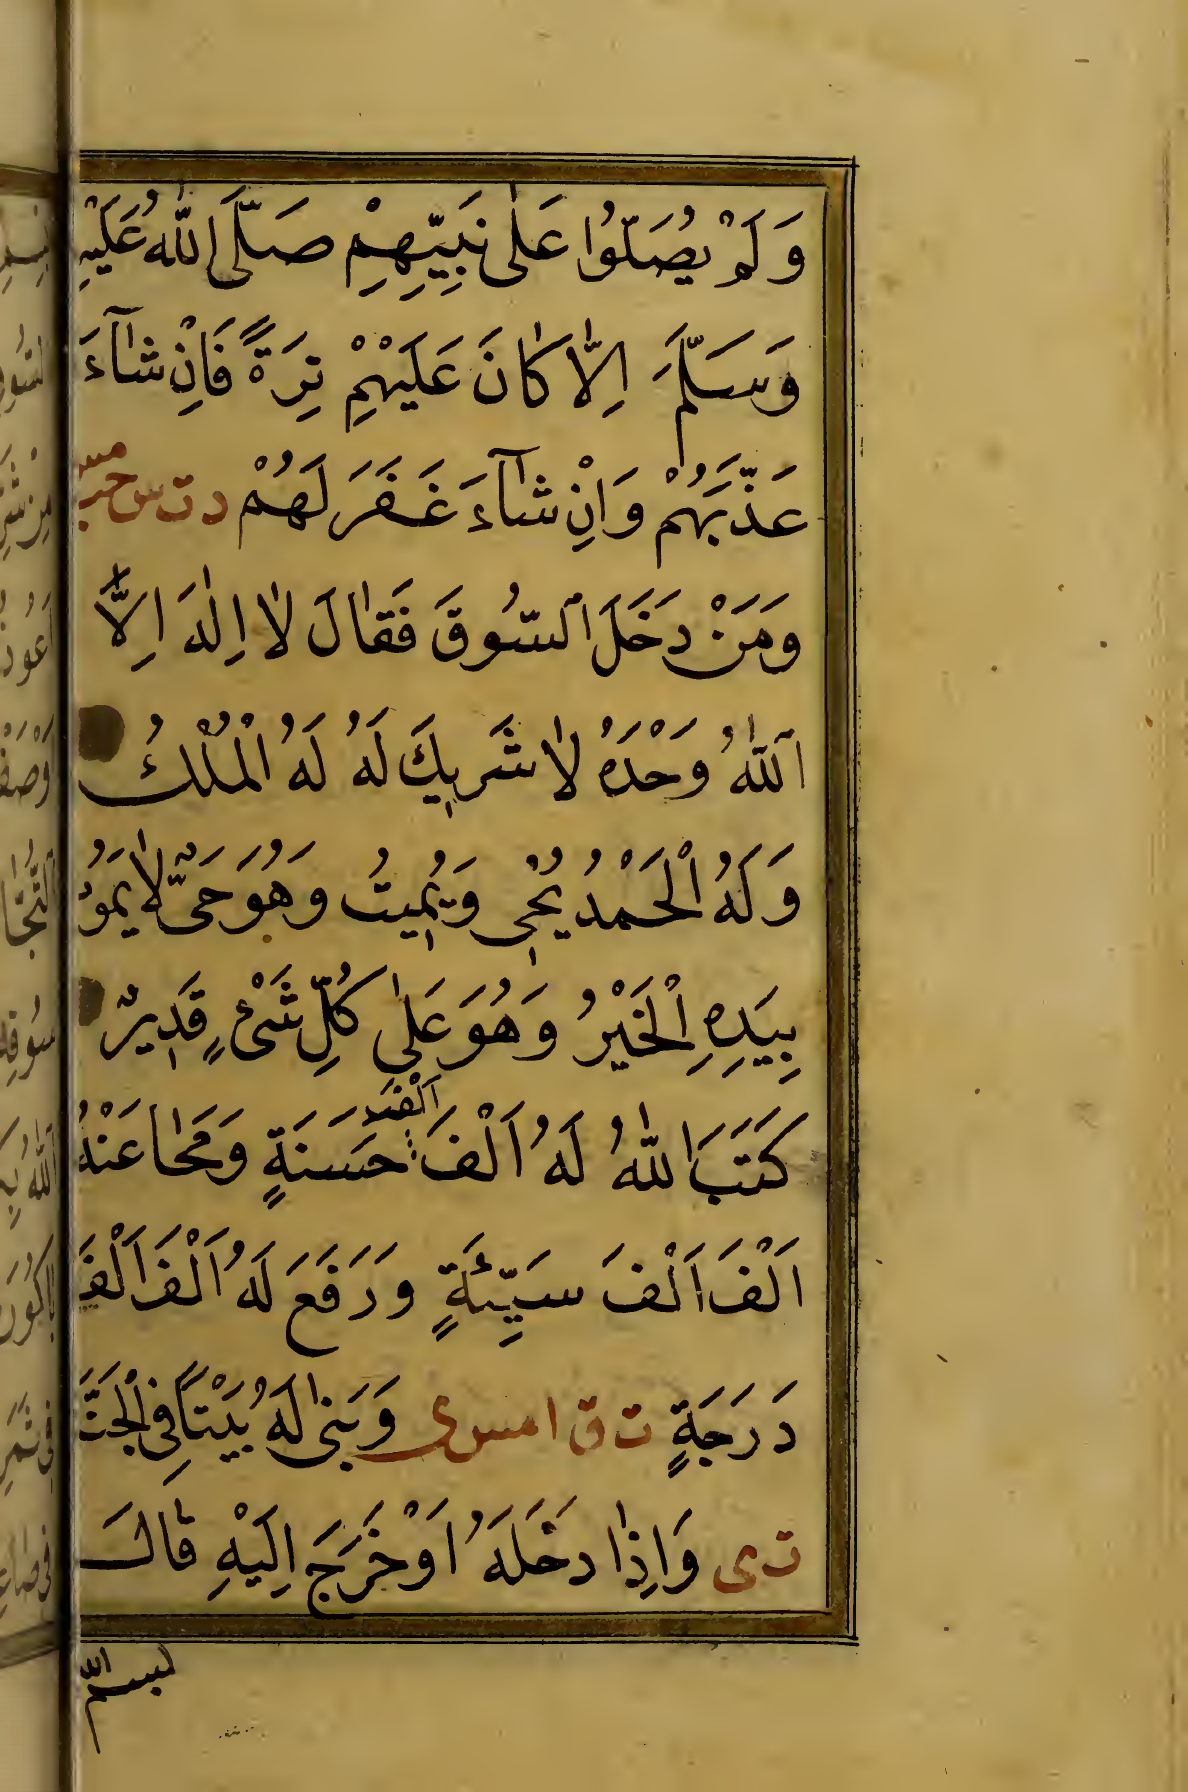 وَلَمْ يُصَلُّوا عَلٰى نَبِيِّهِمْ صَلَّى اللّٰهُ عَلَيْهِ
وَسَلَّمَ اِلَّا كَانَ عَلَيْهِمْ تِرَةً فَاِنْ شَآءَ
عَذَّبَهُمْ وَاِنْ شَآءَ غَفَرَ لَهُمْ د ت س حب مس
وَمَنْ دَخَلَ السُّوقَ فَقَالَ لَا اِلٰهَ اِلَّا
اللّٰهُ وَحْدَهُ لَا شَرِيكَ لَهُ لَهُ الْمُلْكُ
وَلَهُ الْحَمْدُ يُحْيِى وَيُمِيتُ وَهُوَ حَىٌّ لَا يَمُوتُ
بِيَدِهِ الْخَيْرُ وَهُوَ عَلٰى كُلِّ شَىْءٍ قَدِيرٌ
كَتَبَ اللّٰهُ لَهُ اَلْفَ اَلْفِ حَسَنَةٍ وَمَحَا عَنْهُ
اَلْفَ اَلْفَ سَيِّئَةٍ وَرَفَعَ لَهُ اَلْفَ اَلْفَ
دَرَجَةٍ ت ق ا مس ى وَبَنٰى لَهُ بَيْتًا فِى الْجَنَّةِ
ت ى وَاِذَا دَخَلَهُ اَوْ خَرَجَ اِلَيْهِ قَالَ
بسم اللّٰه